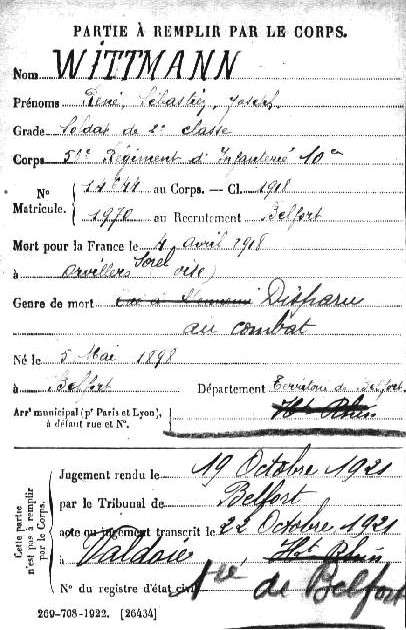 PARTIE À REMPLIR PAR LE CORPS.
Nom WITTMANN
Prénoms René, Sébastien, Joseph
Grade Soldat de 2e classe
Corps 50e Régiment d'Infanterie 10e
N° Matricule. { 14844 au Corps. — Cl. 1918
1970 au Recrutement Belfort
Mort pour la France le 4 avril 1918
à Orvillers Sorel Oise)
Genre de mort Disparu
au combat
Né le 5 Mai 1898
à Belfort Département Territoire de Belfort
Ht Rhin
Arrt municipal (pr Paris et Lyon), à défaut rue et N°.
Cette partie n'est pas à remplir par le Corps.
Jugement rendu le 19 Octobre 1921
par le Tribunal de Belfort
acte ou jugement transcrit le 22 Octobre 1921
à Valdoie Ht Rhin
N° du registre d'état civil Tre de Belfort
269-708-1922. [26434]